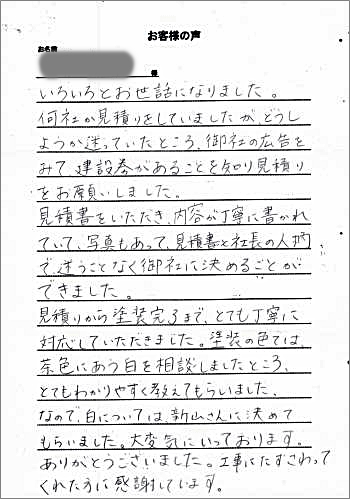 お客様の声
お名前
様
いろいろとお世話になりました。
何社か見積りをしていましたが、どうし
ようか迷っていたところ、御社の広告を
みて建設券があることを知り見積り
をお願いしました。
見積書をいただき、内容が丁寧に書かれ
ていて、写真もあって、見積書と社長の人柄
で、迷うことなく御社に決めることが
できました。
見積りから塗装完了まで、とても丁寧に
対応していただきました。塗装の色では、
茶色にあう白を相談しましたところ、
とてもわかりやすく教えてもらいました。
なので、白については、新山さんに決めて
もらいました。大変気にいっております。
ありがとうございました。工事にたずさわって
くれた方に感謝しています。